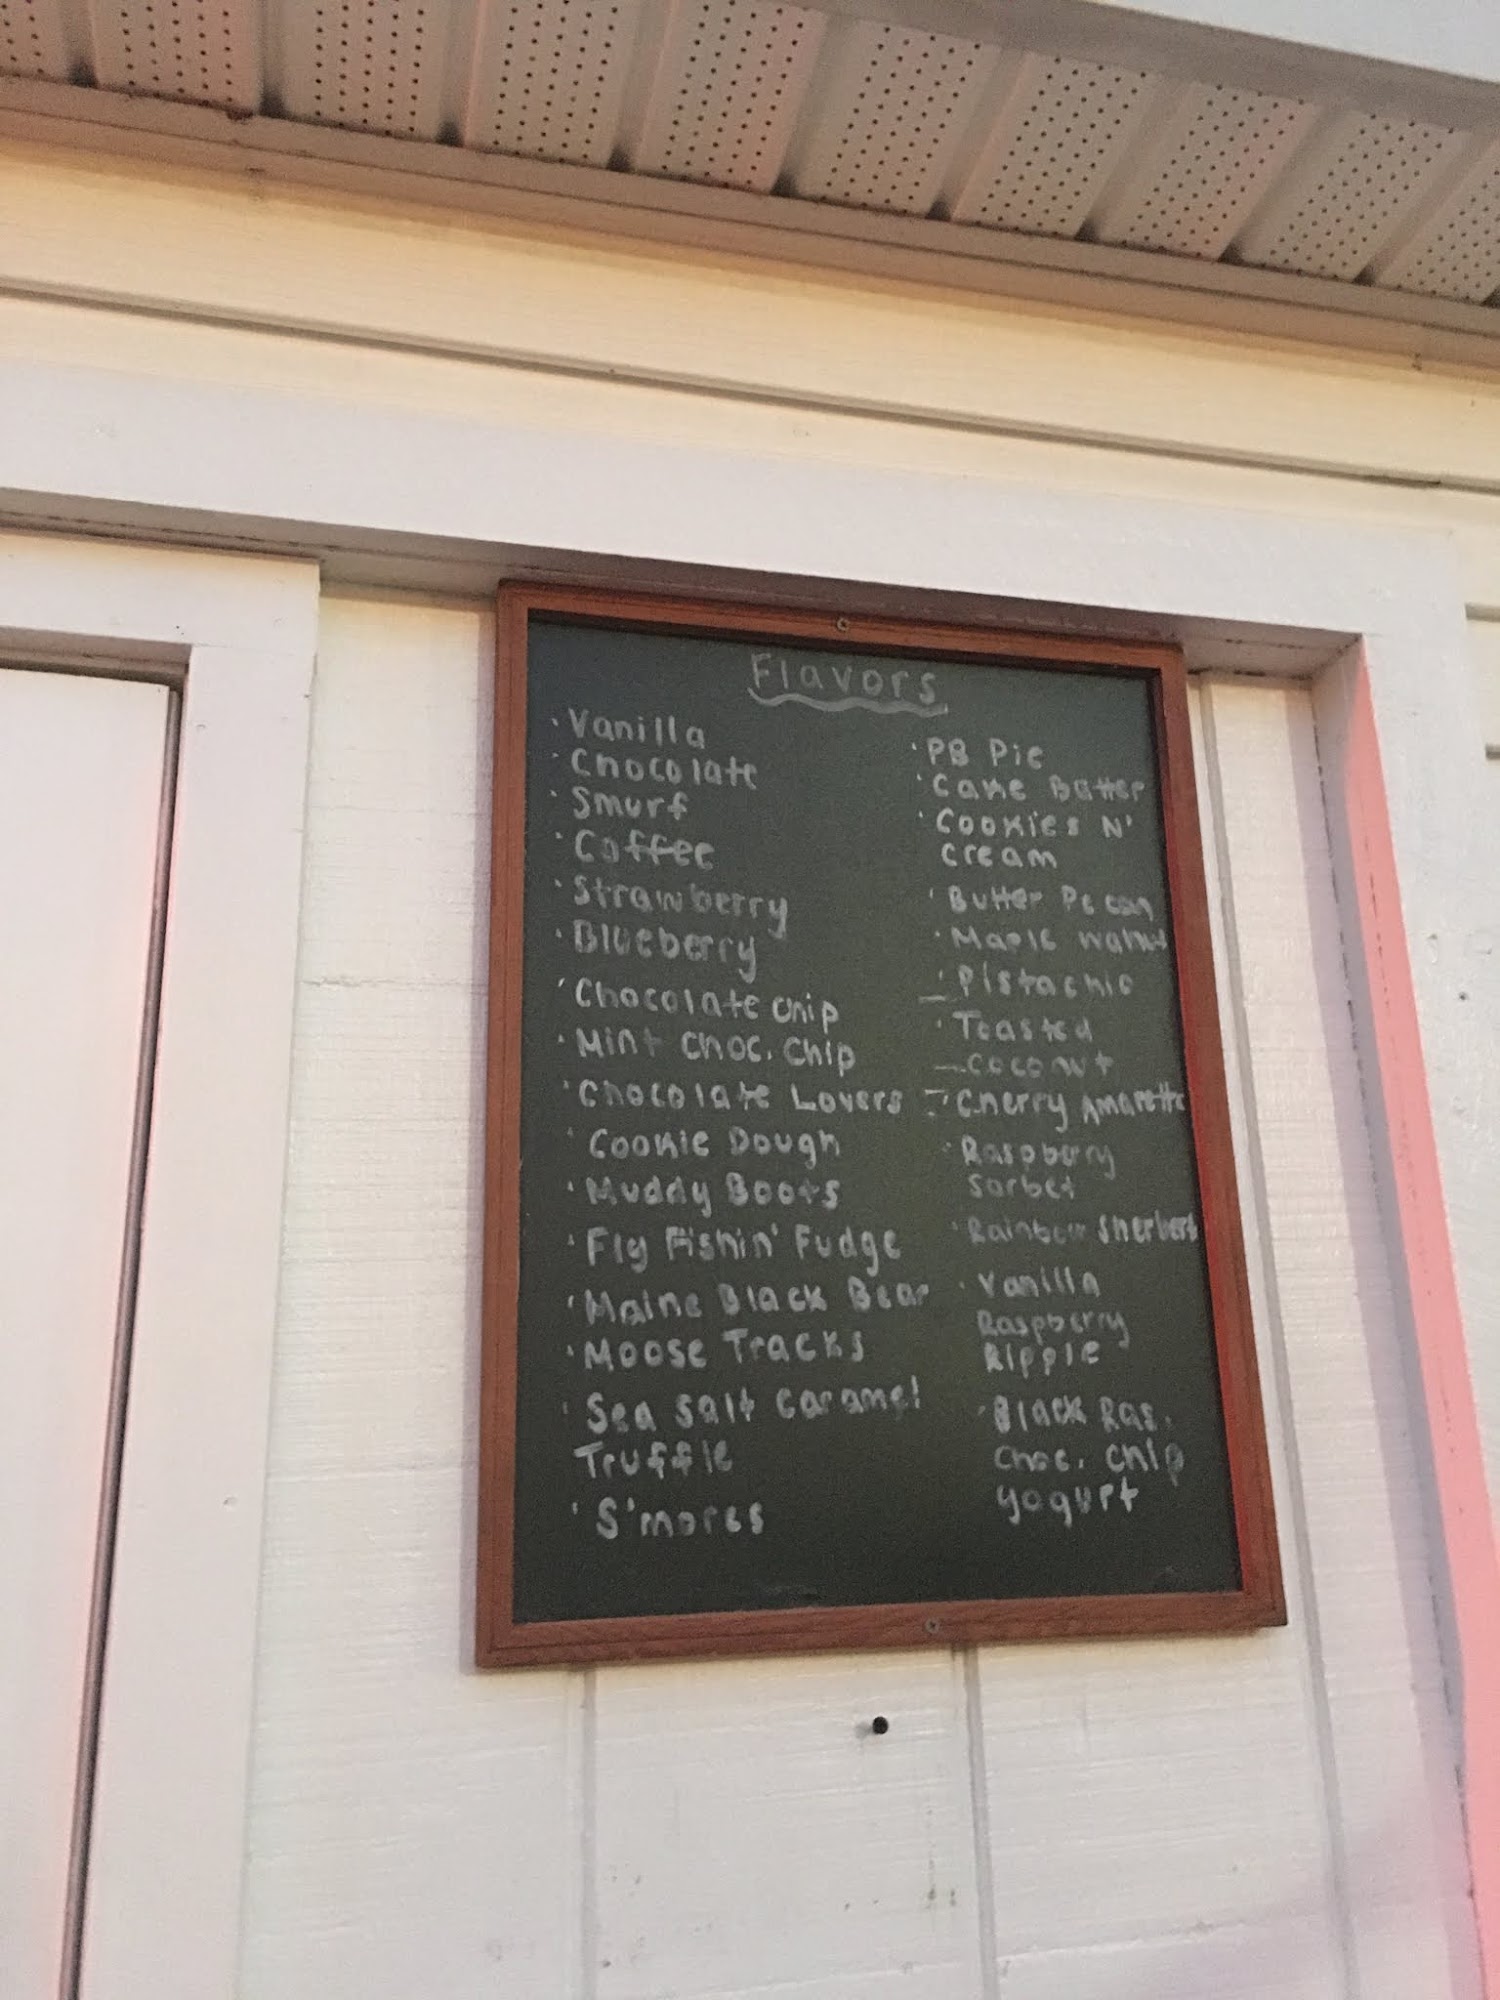 Flavors
· Vanilla
· Chocolate
· Smurf
· Coffee
· Strawberry
· Blueberry
· Chocolate Chip
· Mint Choc. Chip
· Chocolate Lovers
· Cookie Dough
· Muddy Boots
· Fly Fishin' Fudge
· Maine Black Bear
· Moose Tracks
· Sea Salt Caramel
Truffle
· S'mores
· PB Pie
· Cake Batter
· Cookies N'
Cream
· Butter Pecan
· Maple Walnut
· Pistachio
· Toasted
Coconut
· Cherry Amaretto
· Raspberry
Sorbet
· Rainbow Sherbert
· Vanilla
Raspberry
Ripple
· Black Ras.
Choc. Chip
Yogurt